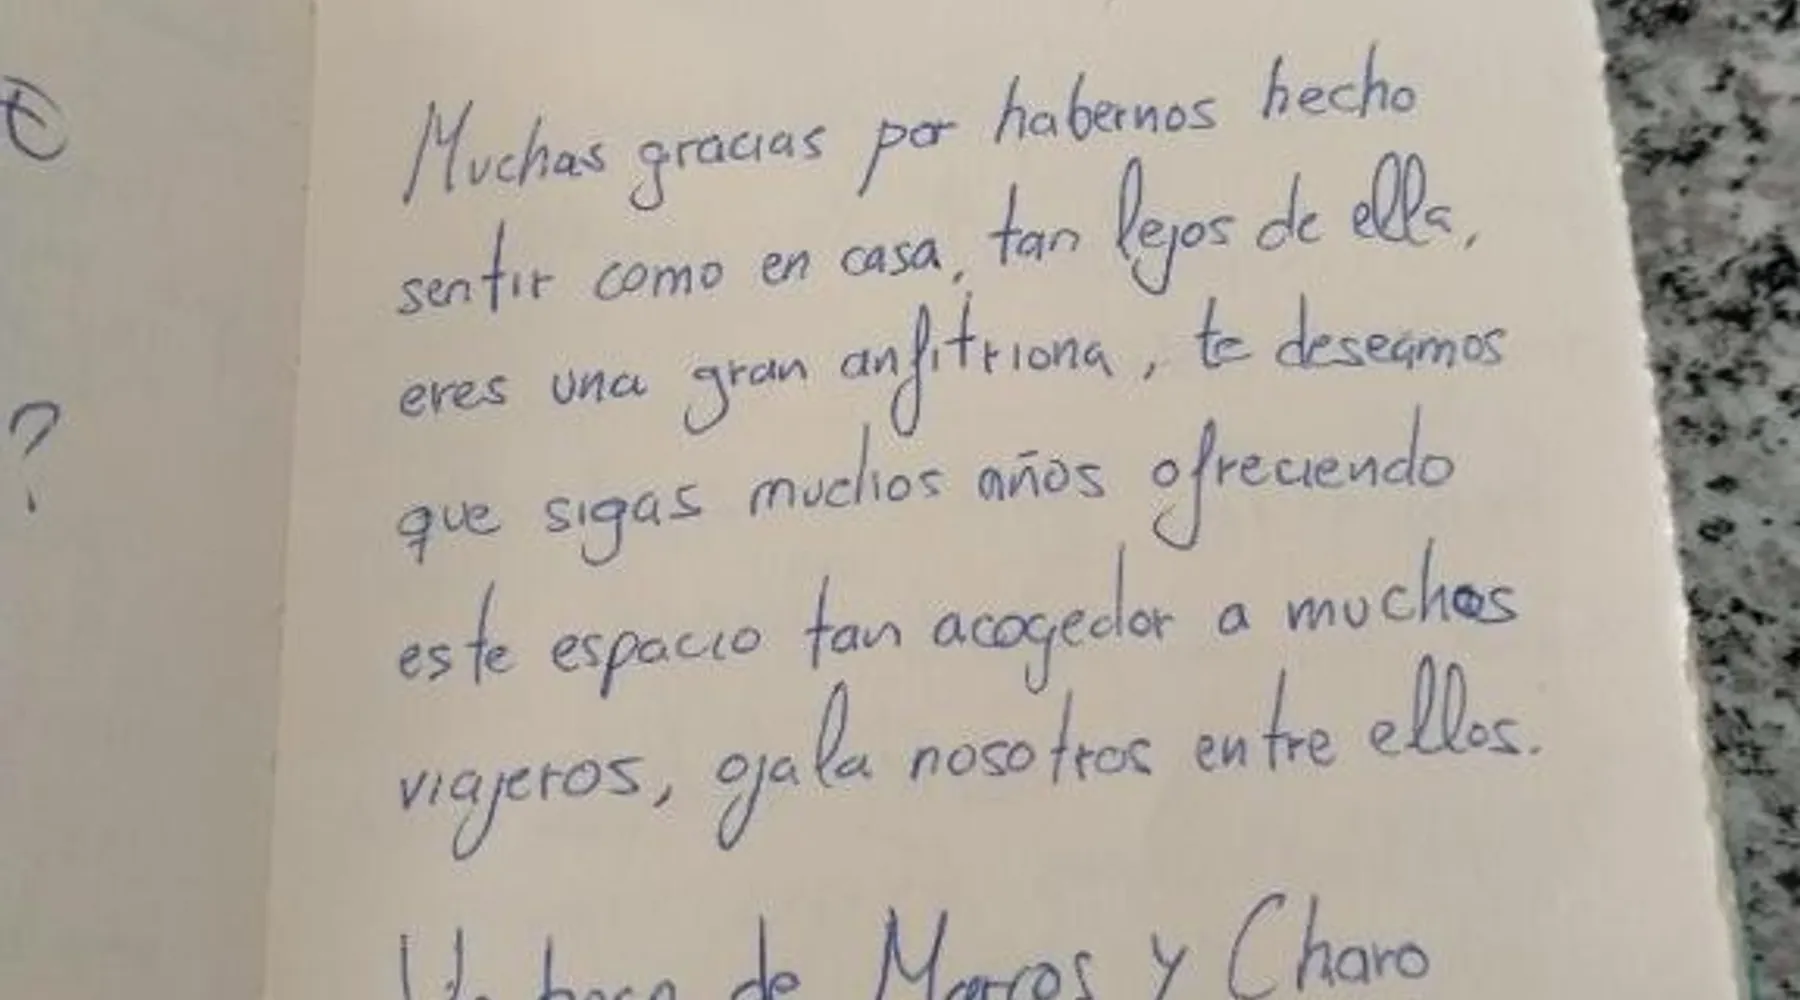 Muchas gracias por habernos hecho
sentir como en casa, tan lejos de ella,
eres una gran anfitriona, te deseamos
que sigas muchos años ofreciendo
este espacio tan acogedor a muchos
viajeros, ojala nosotros entre ellos.
Un beso de Marcos y Charo
?